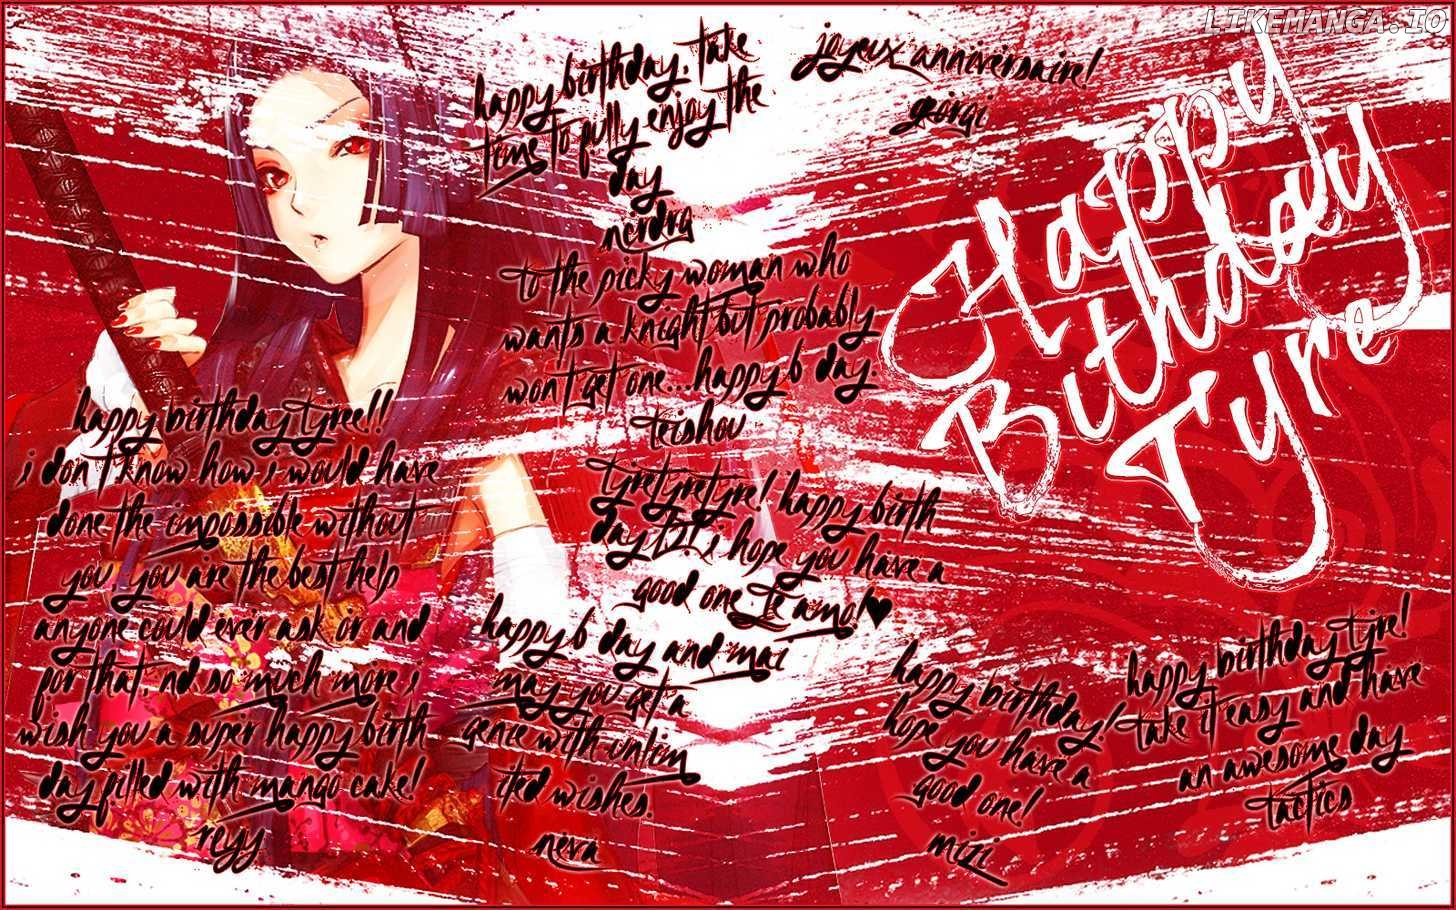 LIKEMANGA.IO
happy birthday. take
time to fully enjoy the
day
nerdra
joyeux anniversaire!
georgi
Happy
Bithday
Tyre
to the picky woman who
wants a knight but probably
won't get one...happy b day.
teishou
happy birthday tyree!!
i don't know how i would have
done the impossible without
you. you are the best help
anyone could ever ask or and
for that, nd so much more i
wish you a super happy birth
day filled with mango cake!
reyy
tyretyretyre! happy birth
day
i hope you have a
good one. te amo!♥
happy b day and mai
may you get a
genie with unlim
ited wishes.
neva
happy birthday!
hope you have a
good one!
mizi
happy birthday tyre!
take it easy and have
an awesome day
tactics